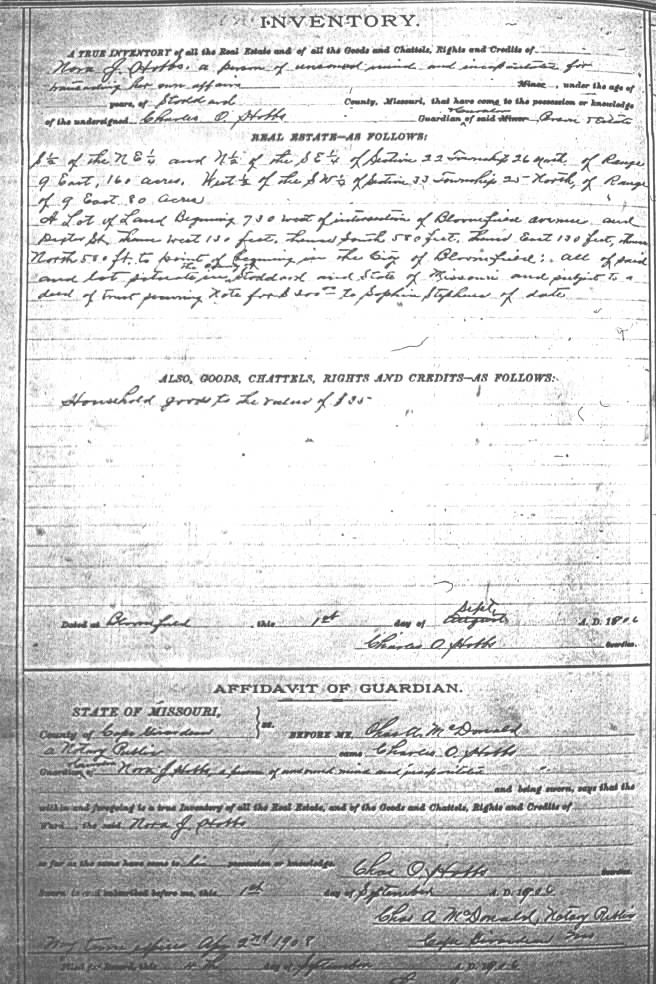 INVENTORY.
A TRUE INVENTORY of all the Real Estate and of all the Goods and Chattels, Rights and Credits of
Nora J. Hobbs, a person of unsound mind and incapable for
transacting her own affairs Minor, under the age of
years, of Stoddard County, Missouri, that have come to the possession or knowledge
of the undersigned Charles O. Hobbs Guardian of said Minor
REAL ESTATE—AS FOLLOWS:
S½ of the N E¼ and N½ of the S E¼ of Section 22 Township 26 North, of Range
9 East, 160 acres. West ½ of the S W¼ of Section 33 Township 25 North, of Range
of 9 East 80 acres
A Lot of Land Beginning 730 west of intersection of Bloomfield avenue and
St, thence West 130 feet, thence South 580 feet, thence East 130 feet, thence
North 580 ft. to point of beginning in the City of Bloomfield: all of said
and lot situate in the County of Stoddard and State of Missouri and subject to a
deed of trust securing Note for $200 to Sophia Stephens of date
ALSO, GOODS, CHATTELS, RIGHTS AND CREDITS—AS FOLLOWS:
Household goods to the value of $35
Sept
Dated at Bloomfield, this 1st day of August A. D. 1906
Charles O. Hobbs Guardian.
AFFIDAVIT OF GUARDIAN.
STATE OF MISSOURI,
County of Cape Girardeau } ss. BEFORE ME, Chas A. McDonald
a Notary Public came Charles O. Hobbs
Guardian of Nora J. Hobbs, a person of unsound mind and
and being sworn, says that the
within and foregoing is a true Inventory of all the Real Estate, and of the Goods and Chattels, Rights and Credits of
Ward, the said Nora J. Hobbs
so far as the same have come to his possession or knowledge.
Chas O. Hobbs Guardian
Sworn to and subscribed before me, this 1st day of September A. D. 1906
Chas A. McDonald, Notary Public
My term expires Apr 2nd 1908 Cape Girardeau Mo
Filed for Record, this day of September A. D. 1906